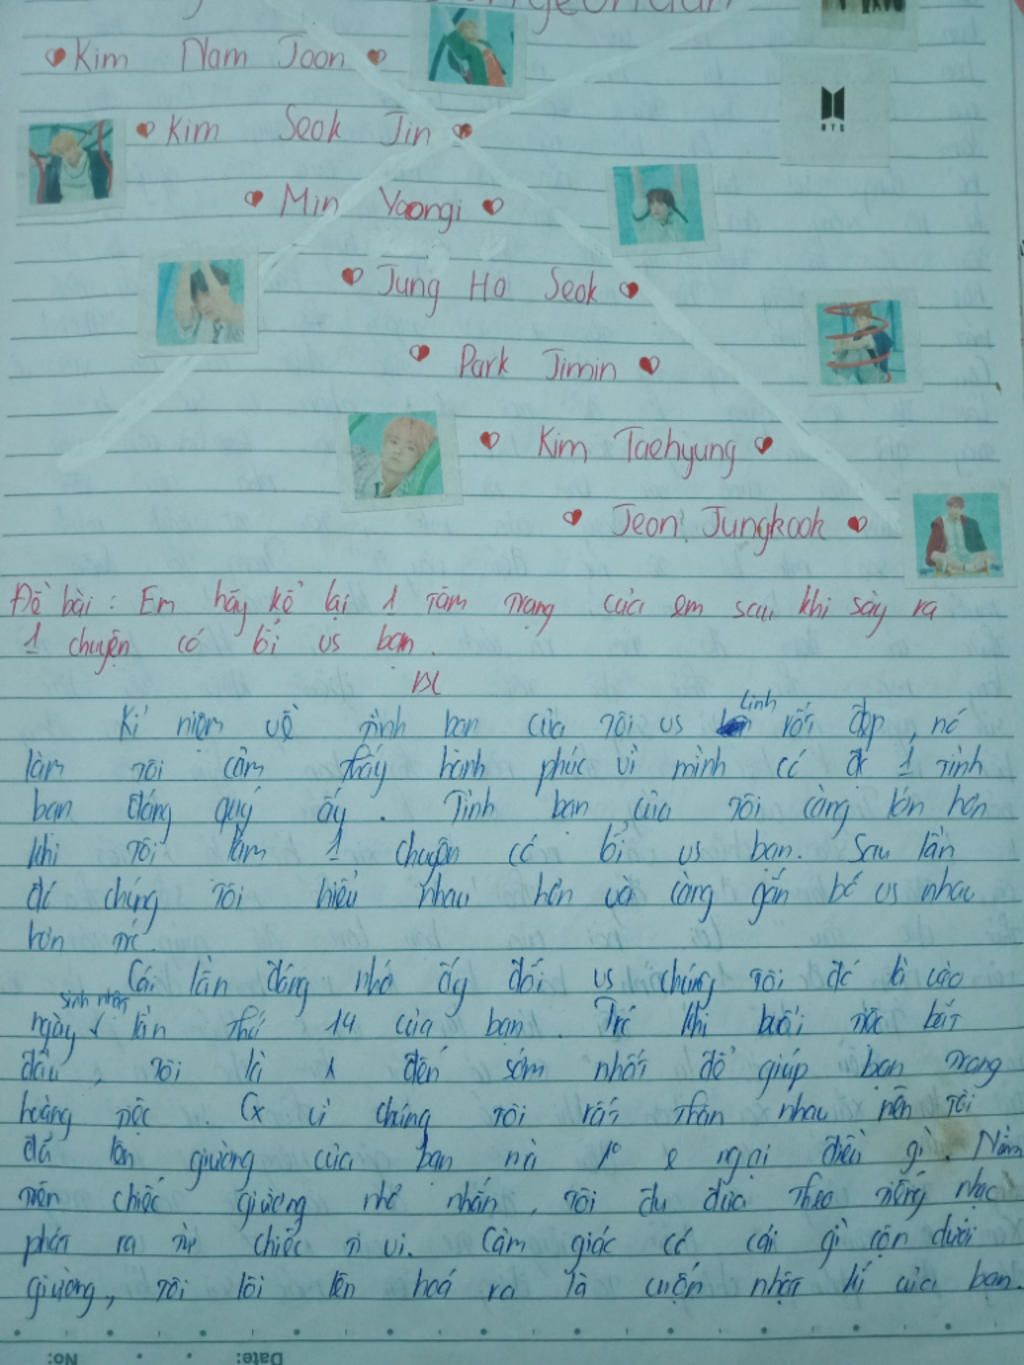 Kim Nam Joon
BTS
Kim Seok Jin
Min Yoongi
Jung Ho Seok
Park Jimin
Kim Taehyung
Jeon Jungkook
Đề bài: Em hãy kể lại 1 tâm trạng của em sau khi sảy ra
1 chuyện có lỗi vs bạn.
BL
Kỉ niệm về tình bạn của tôi vs Linh rất đẹp, nó
làm tôi cảm thấy hạnh phúc vì mình có đc 1 tình
bạn đáng quý ấy. Tình bạn của tôi càng lớn hơn
khi tôi làm 1 chuyện có lỗi vs bạn. Sau lần
đó chúng tôi hiểu nhau hơn và càng gắn bó vs nhau
hơn trc.
Cái lần đáng nhớ ấy đối vs chúng tôi đó là vào
ngày sinh nhật lần thứ 14 của bạn. Trc khi buổi tiệc bắt
đầu, tôi là 1 đến sớm nhất để giúp bạn trang
hoàng tiệc. Cx vì chúng tôi rất thân nhau nên tôi
đã lên giường của bạn mà ko e ngại điều gì. Nằm
trên chiếc giường nhỏ nhắn, tôi đu đưa theo tiếng nhạc
phát ra từ chiếc ti vi. Cảm giác có cái gì cộn dưới
giường, tôi lôi lên hoá ra là cuốn nhật kí của bạn.
No:
Date: